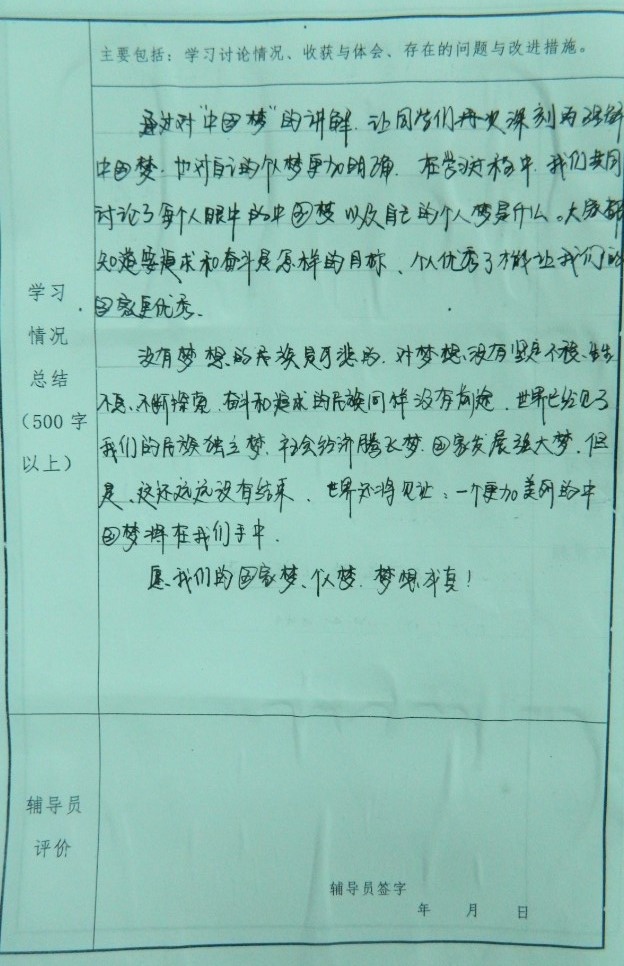 主要包括：学习讨论情况、收获与体会、存在的问题与改进措施。
学习
情况
总结
（500字
以上）
通过对“中国梦”的讲解，让同学们再次深刻的理解
中国梦，也对自己的个人梦更加明确。在学习过程中，我们共同
讨论了每个人眼中的中国梦以及自己的个人梦是什么。大家都
知道要追求和奋斗是怎样的目标、个人优秀了才能让我们的
国家更优秀。
没有梦想的民族是可悲的，对梦想没有坚定不移、生生
不息、不断探索、奋斗和追求的民族同样没有前途，世界已经见了
我们的民族独立梦，社会经济腾飞梦，国家发展强大梦，但
是，这还远远没有结束，世界还将见证：一个更加美丽的中
国梦将在我们手中，
愿我们的国家梦、个人梦，梦想成真！
辅导员
评价
辅导员签字
年 月 日